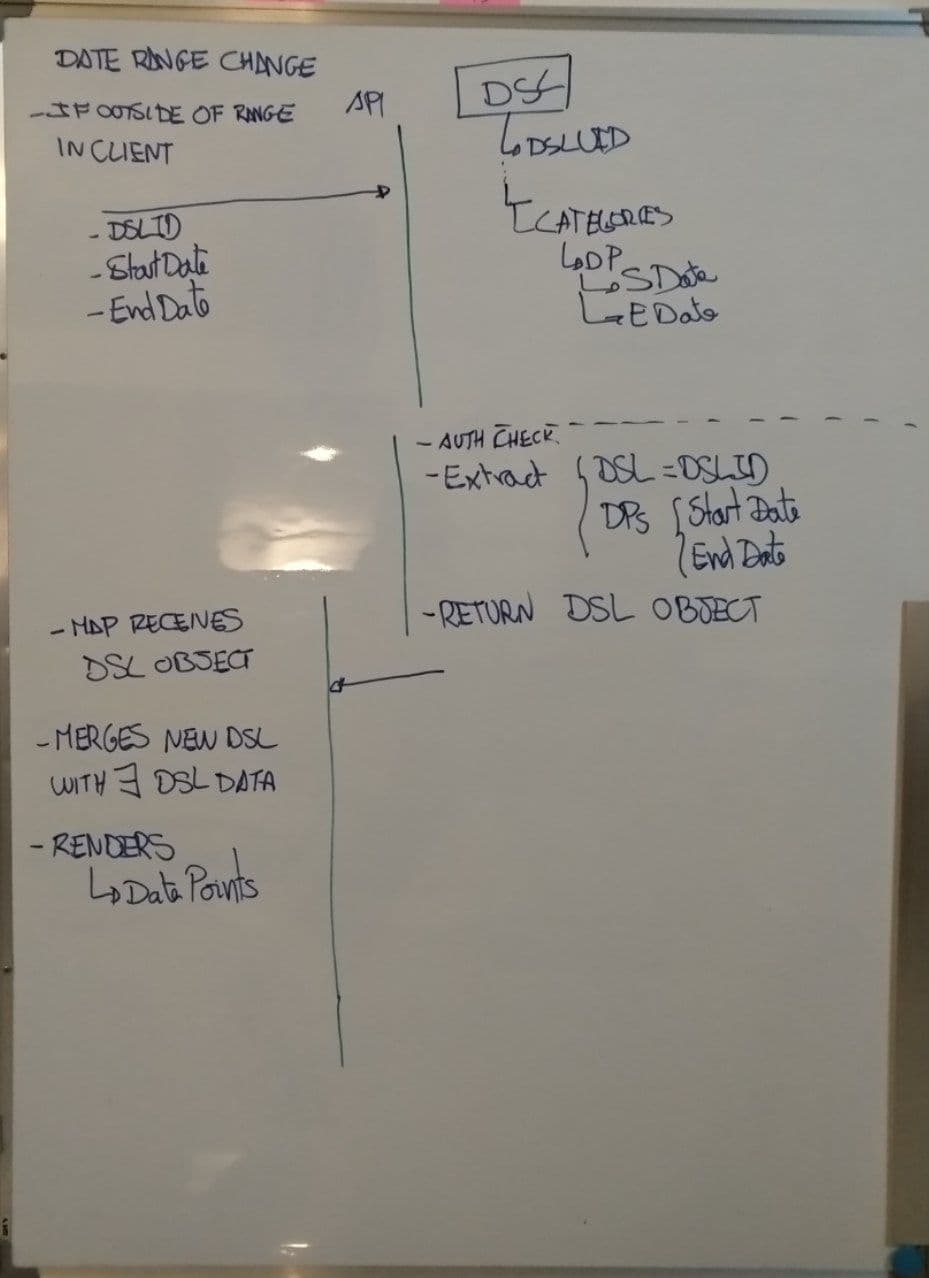 DATE RANGE CHANGE
- IF OUTSIDE OF RANGE
IN CLIENT
API
- DSLID
- Start Date
- End Date
DSL
DSLUID
CATEGORIES
DP
S Date
E Date
- AUTH CHECK.
- Extract { DSL = DSLID
DPs { Start Date
End Date
- RETURN DSL OBJECT
- MAP RECEIVES
DSL OBJECT
- MERGES NEW DSL
WITH ∃ DSL DATA
- RENDERS
Data Points